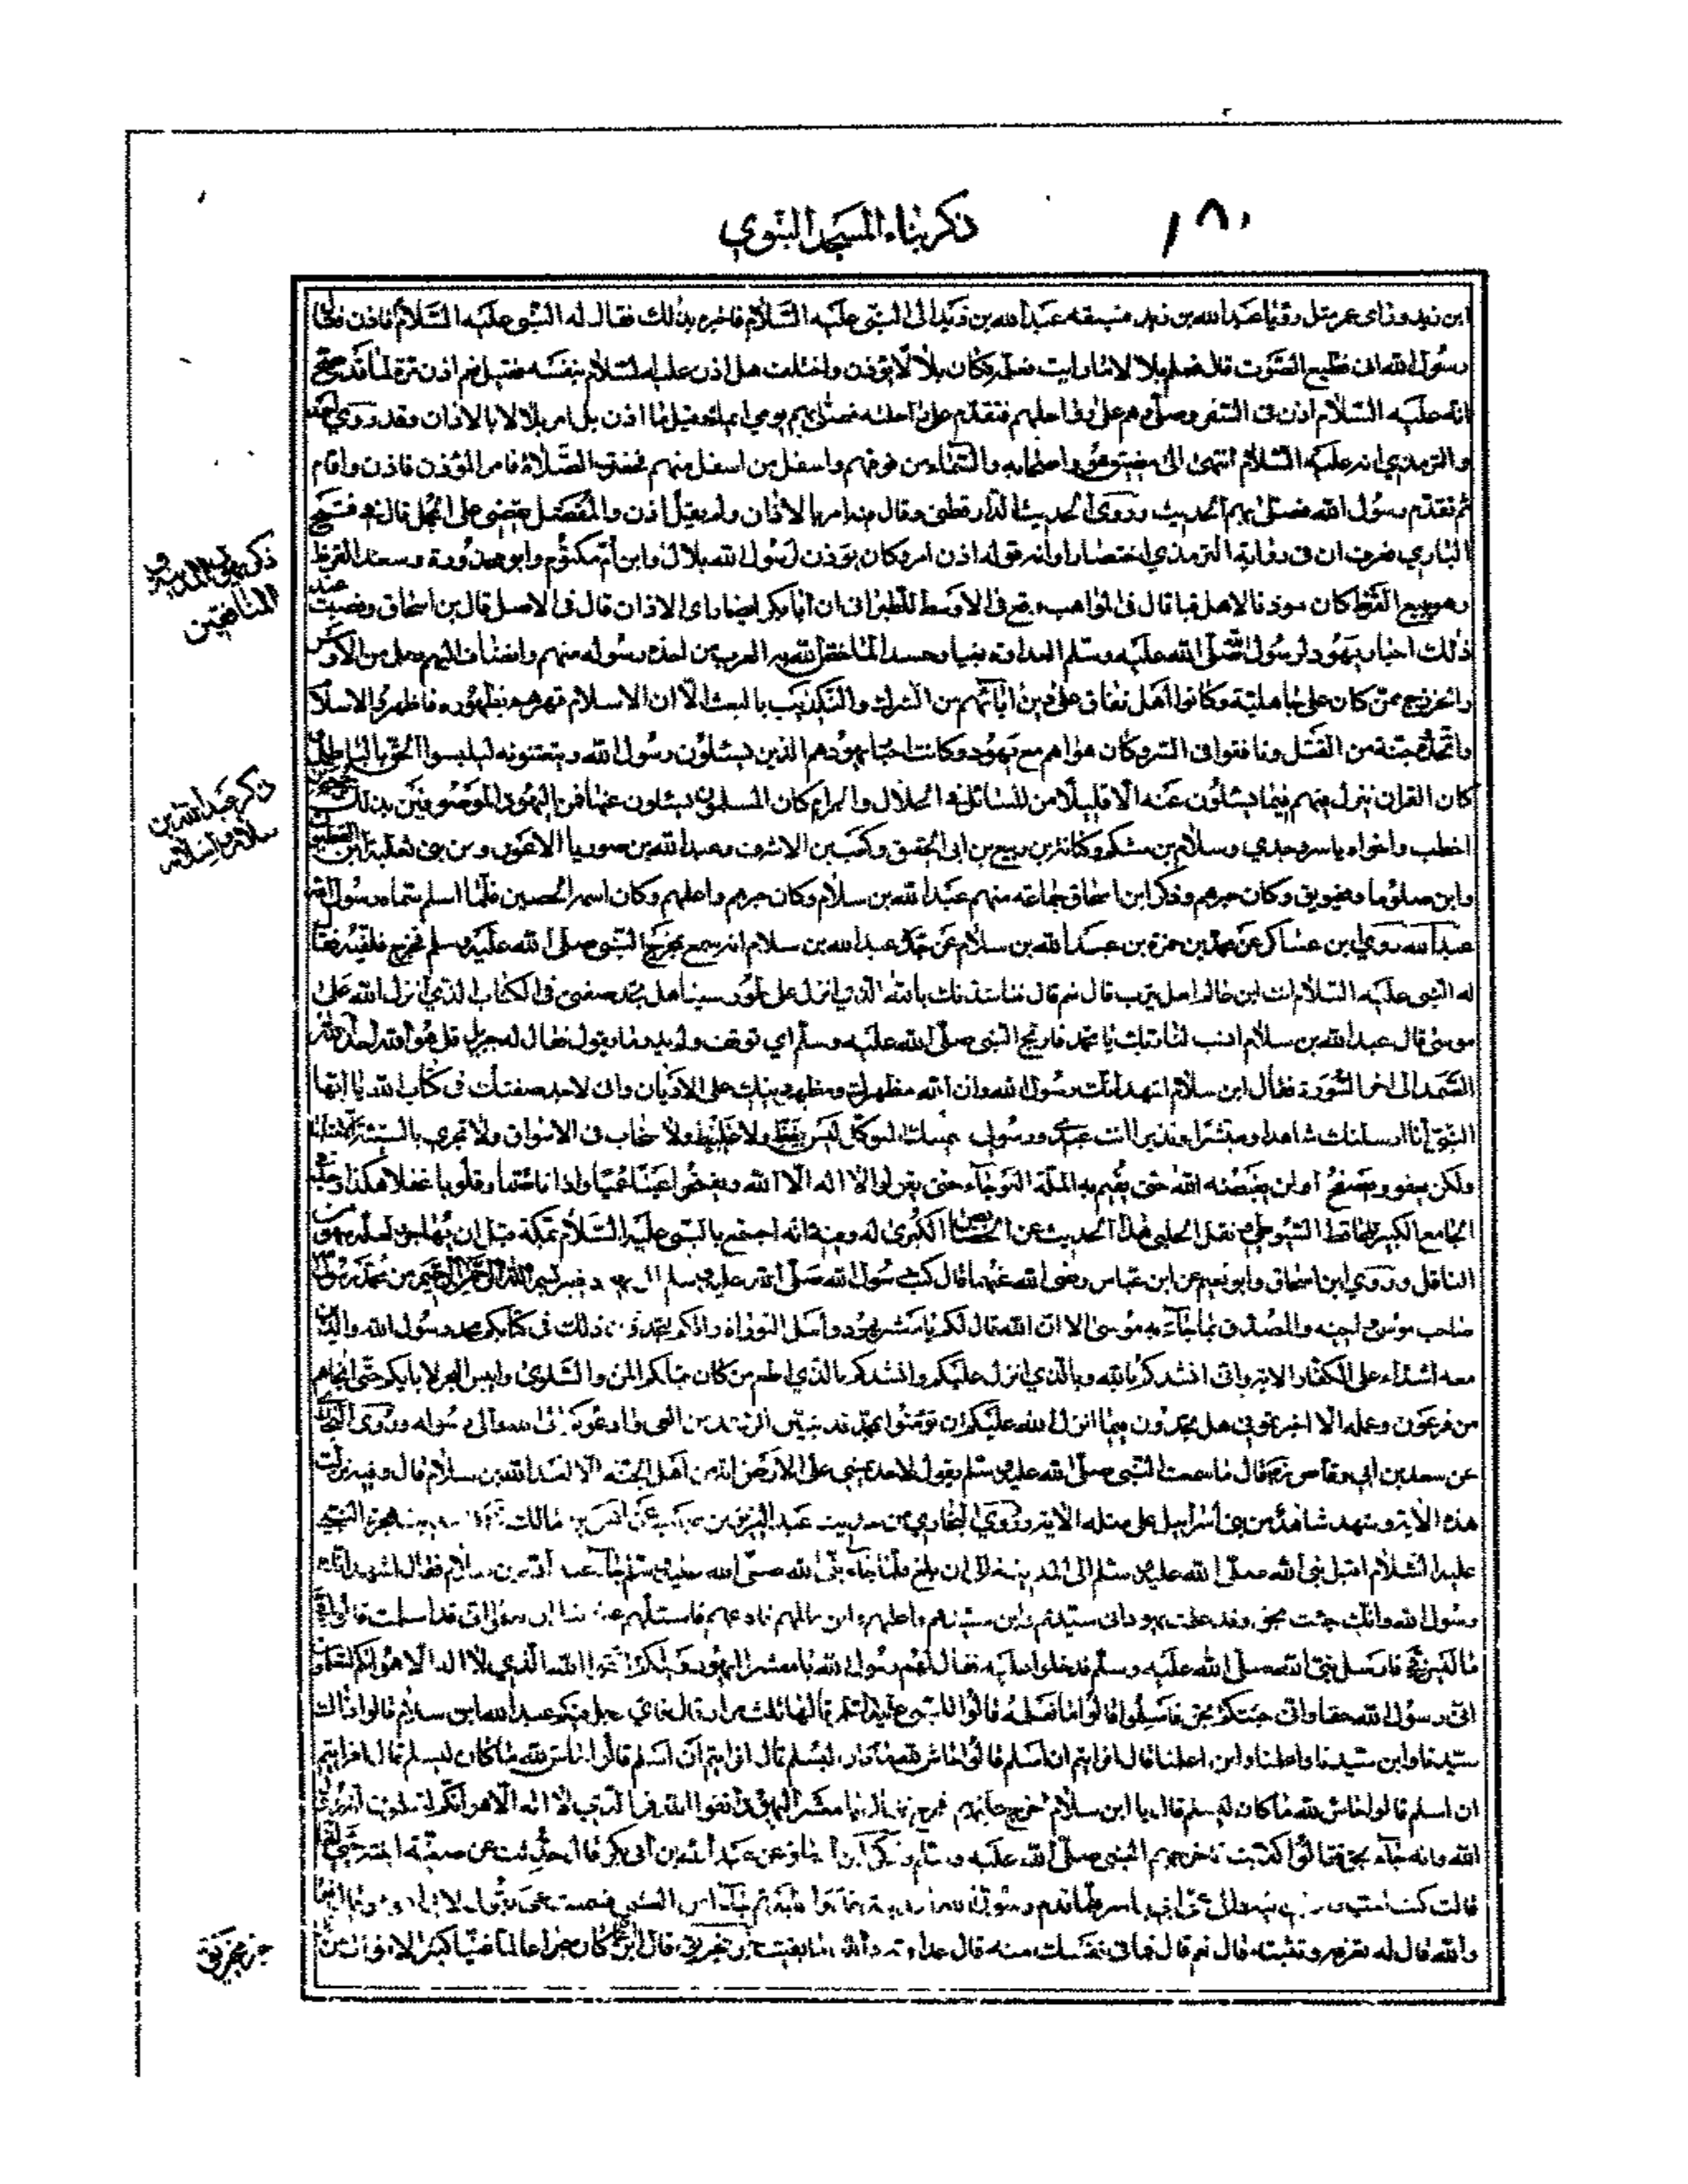 ١٨٠
ذكر بناء المسجد النبوي
ابن زيد وراى عمر مثل رؤيا عبد الله بن زيد فسبقه عبد الله بن زيد الى النبي عليه السّلام فاخبره بذلك فقال له النبي عليه السّلام فاذن فقال
رسول الله اني فظيع الصّوت قال فعلم بلالا ما رايت فعلم وكان بلال يؤذن واختلف هل اذن عليه السّلام بنفسه فقيل نعم اذن مرة لما قد صح
انه عليه السّلام اذن في السّفر وصلّى وهم على رواحلهم فتقدّم على راحلته فصلّى بهم يومي ايماء وقيل ما اذن بل امر بلالا بالاذان وقد روي احمد
والترمذي انه عليه السّلام انتهى الى مضيق هو واصحابه والسّماء من فوقهم واسفل من اسفل منهم فحضرت الصّلاة فامر المؤذن فاذن واقام
ثم تقدّم رسول الله فصلّى بهم الحديث وروى الحديث الدّارقطني وقال فيه امر بالاذان ولم يقل اذن والمفصّل يقضي على المجمل قال في فتح
الباري فعرف ان في رواية الترمذي اختصارا وان قوله اذن امر وكان يؤذن لرسول الله بلال وابن أم مكتوم وابو محذورة وسعد القرظ
وهو يبيع القرظ كان مؤذنا لاهل قبا قال في المواهب وفي الاوسط للطبراني ان أبا بكر ايضا راى الاذان قال في الاصل قال بن اسحاق ونصبت عند
ذلك احبار يهود لرسول الله صلّى الله عليه وسلّم العداوة بغيا وحسدا لما خصّ الله به العرب من اخذه رسوله منهم وانضاف اليهم رجال من الاوس
والخزرج ممّن كان على جاهليّته وكانوا اهل نفاق على دين آبائهم من الشرك والتكذيب بالبعث الّا ان الاسلام قهرهم بظهوره فاظهروا الاسلام
واتخذوه جنّة من القتل ونافقوا في السّر وكان هواهم مع يهود وكانت احبار يهود هم الذين يسئلون رسول الله ويتعنتونه ليلبسوا الحقّ بالباطل
كان القران ينزل فيهم فيما يسئلون عنه الّا قليلا من المسائل في الحلال والحرام كان المسلمون يسئلون عنها فمن اليهود الموصوفين بذلك
اخطب واخواه ياسر وجدي وسلام بن مشكم وكنانة بن ربيع بن ابي الحقيق وكعب بن الاشرف وعبد الله بن صوريا الاعور ومن بني ثعلبة ابن
وابن صلوبا ومخيريق وكان حبرهم وذكر ابن اسحاق جماعة منهم عبد الله بن سلام وكان حبرهم واعلمهم وكان اسمه الحصين فلمّا اسلم سمّاه رسول الله
عبد الله روي ابن عساكر عن محمد بن حمزة بن عبد الله بن سلام عن جدّه عبد الله بن سلام انه سمع بمخرج النبي صلّى الله عليه وسلم فخرج فلقيه فقال
له النبي عليه السّلام انت ابن سلام عالم اهل يثرب قال نعم قال ناشدتك بالله الذي انزل على طور سينا هل تجد صفتي في الكتاب الذي انزل الله على
موسى قال عبد الله بن سلام انسب لنا ربّك يا محمد فارتج النبي صلّى الله عليه وسلّم اي توقف ولم يدر ما يقول فقال له جبريل قل هو الله احد الله
الصّمد الى اخر السّورة فقال ابن سلام اشهد انك رسول الله وان الله مظهرك ومظهر دينك على الاديان واني لاجد صفتك في كتاب الله يا ايها
النبيّ إنّا ارسلناك شاهدا ومبشّرا ونذيرا انت عبدي ورسولي سميتك المتوكّل ليس بفظّ ولا غليظ ولا سخاب في الاسواق ولا تجزي بالسّيئة مثلها
ولكن يعفو ويصفح ولن يقبضه الله حتى يقيم به الملّة العوجاء حتى يقولوا لا اله الّا الله ويفتح اعينا عميا واذانا صمّا وقلوبا غلفا هكذا
الجامع الكبير للحافظ السّيوطي نقل الحلبي هذا الحديث عن الخصائص الكبرى له وفيه انه اجتمع بالنبي عليه السّلام بمكّة قبل ان يهاجر
الناقل وروي ابن اسحاق وابو نعيم عن ابن عباس رضي الله عنهما قال كتب رسول الله صلّى الله عليه وسلم الى يهود خيبر بسم الله الرّحمن الرّحيم من محمد رسول الله
صاحب موسى واخيه والمصدّق بما جاء به موسى الا ان الله قال لكم يا معشر يهود واهل التوراة وانكم لتجدون ذلك في كتابكم محمد رسول الله والذين
معه اشدّاء على الكفّار الاية واني انشدكم بالله وبالّذي انزل عليكم وانشدكم بالذي اطعم من كان قبلكم المن والسّلوى وايبس البحر لابائكم حتّى انجاهم
من فرعون وعمله الا اخبرتموني هل تجدون فيما انزل الله عليكم ان تؤمنوا بمحمد قد تبيّن الرشد من الغي وادعوكم الى الله والى رسوله وروى
عن سعد بن ابي وقاص قال ما سمعت النّبي صلّى الله عليه وسلم يقول لاحد يمشي على الارض انه من اهل الجنّة الّا لعبد الله بن سلام قال وفيه نزلت
هذه الاية وشهد شاهد من بني اسرائيل على مثله الاية وروى البخاري من حديث عبد العزيز بن صهيب عن انس بن مالك
عليه السّلام اقبل نبي الله صلّى الله عليه وسلم الى المدينة الى ان بلغ فلمّا جاء نبي الله صلّى الله عليه وسلم جاء عبد الله بن سلام فقال اشهد انّك
رسول الله وانّك جئت بحق وقد علمت يهود اني سيّدهم وابن سيّدهم واعلمهم وابن اعلمهم فادعهم فاستلهم عني قبل ان يعلموا اني قد اسلمت
ما ليس فيّ فارسل نبيّ الله صلّى الله عليه وسلّم فدخلوا عليه فقال لهم رسول الله يا معشر اليهود ويلكم اتقوا الله الّذي لا اله الّا هو انكم لتعلمون
اني رسول الله حقا واني جئتكم بحق فاسلموا قالوا ما نعلمه قالوا للنبي عليه السّلام قالها ثلث مرار قال فاي رجل فيكم عبد الله ابن سلام قالوا ذاك
سيّدنا وابن سيّدنا واعلمنا وابن اعلمنا قال افرايتم ان اسلم قالوا حاش لله ما كان ليسلم قال افرايتم ان اسلم قالوا حاش لله ما كان ليسلم قال افرايتم
ان اسلم قالوا حاش لله ما كان ليسلم قال يا ابن سلام اخرج عليهم فخرج فقال يا معشر اليهود اتقوا الله فوالذي لا اله الّا هو انّكم لتعلمون انه رسول
الله وانه جاء بحق فقالوا كذبت فاخرجهم النبي صلّى الله عليه وسلّم وذكر ابن اسحاق عن عبد الله بن ابي بكر قال حدّثت عن صفيّة ابنة حييّ
قالت كنت احب ولد ابي اليه والى عمّي ابي ياسر فلما قدم رسول الله
والله قال له تعرفه وتثبته قال نعم قال فما في نفسك منه قال عداوته والله ما بقيت مخيريق قال ابن كان حبرا عالما غنيّا كثير الاموال من
ذكر يهود المدينة و
المنافقين
ذكر عبد الله بن
سلام واسلامه
خبر مخيريق